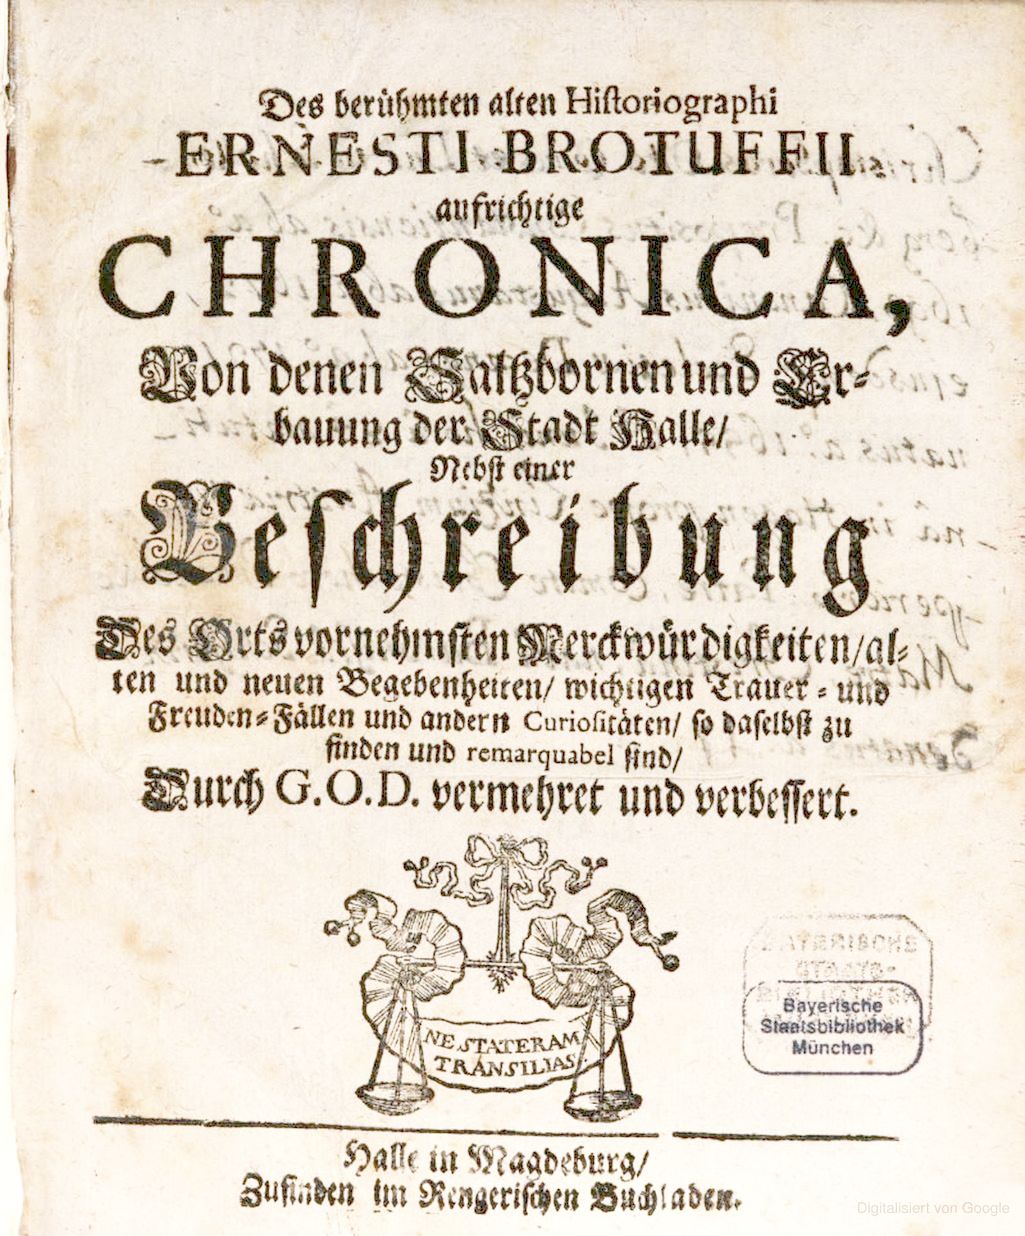 Des berühmten alten Historiographi
ERNESTI BROTUFFII
aufrichtige
CHRONICA,
Von denen Saltzbornen und Er-
bauung der Stadt Halle/
Nebst einer
Beschreibung
Des Orts vornehmsten Merckwürdigkeiten/al-
ten und neuen Begebenheiten/ wichtigen Trauer- und
Freuden-Fällen und andern Curiositäten/ so daselbst zu
finden und remarquabel sind/
Durch G.O.D. vermehret und verbessert.
NE STATERAM
TRANSILIAS
BAYERISCHE
STAATS-
BIBLIOTHEK
Bayerische
Staatsbibliothek
München
Halle in Magdeburg/
Zufinden im Rengerischen Buchladen.
Digitalisiert von Google